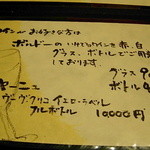 ワインがお好きな方は
ボルドーのいいワインを赤、白
グラス、ボトルでご用意
しております。
グラス 90
ボトル 4
ヤーニュ
ヴーヴクリコ イエローラベル
フルボトル 10,000円